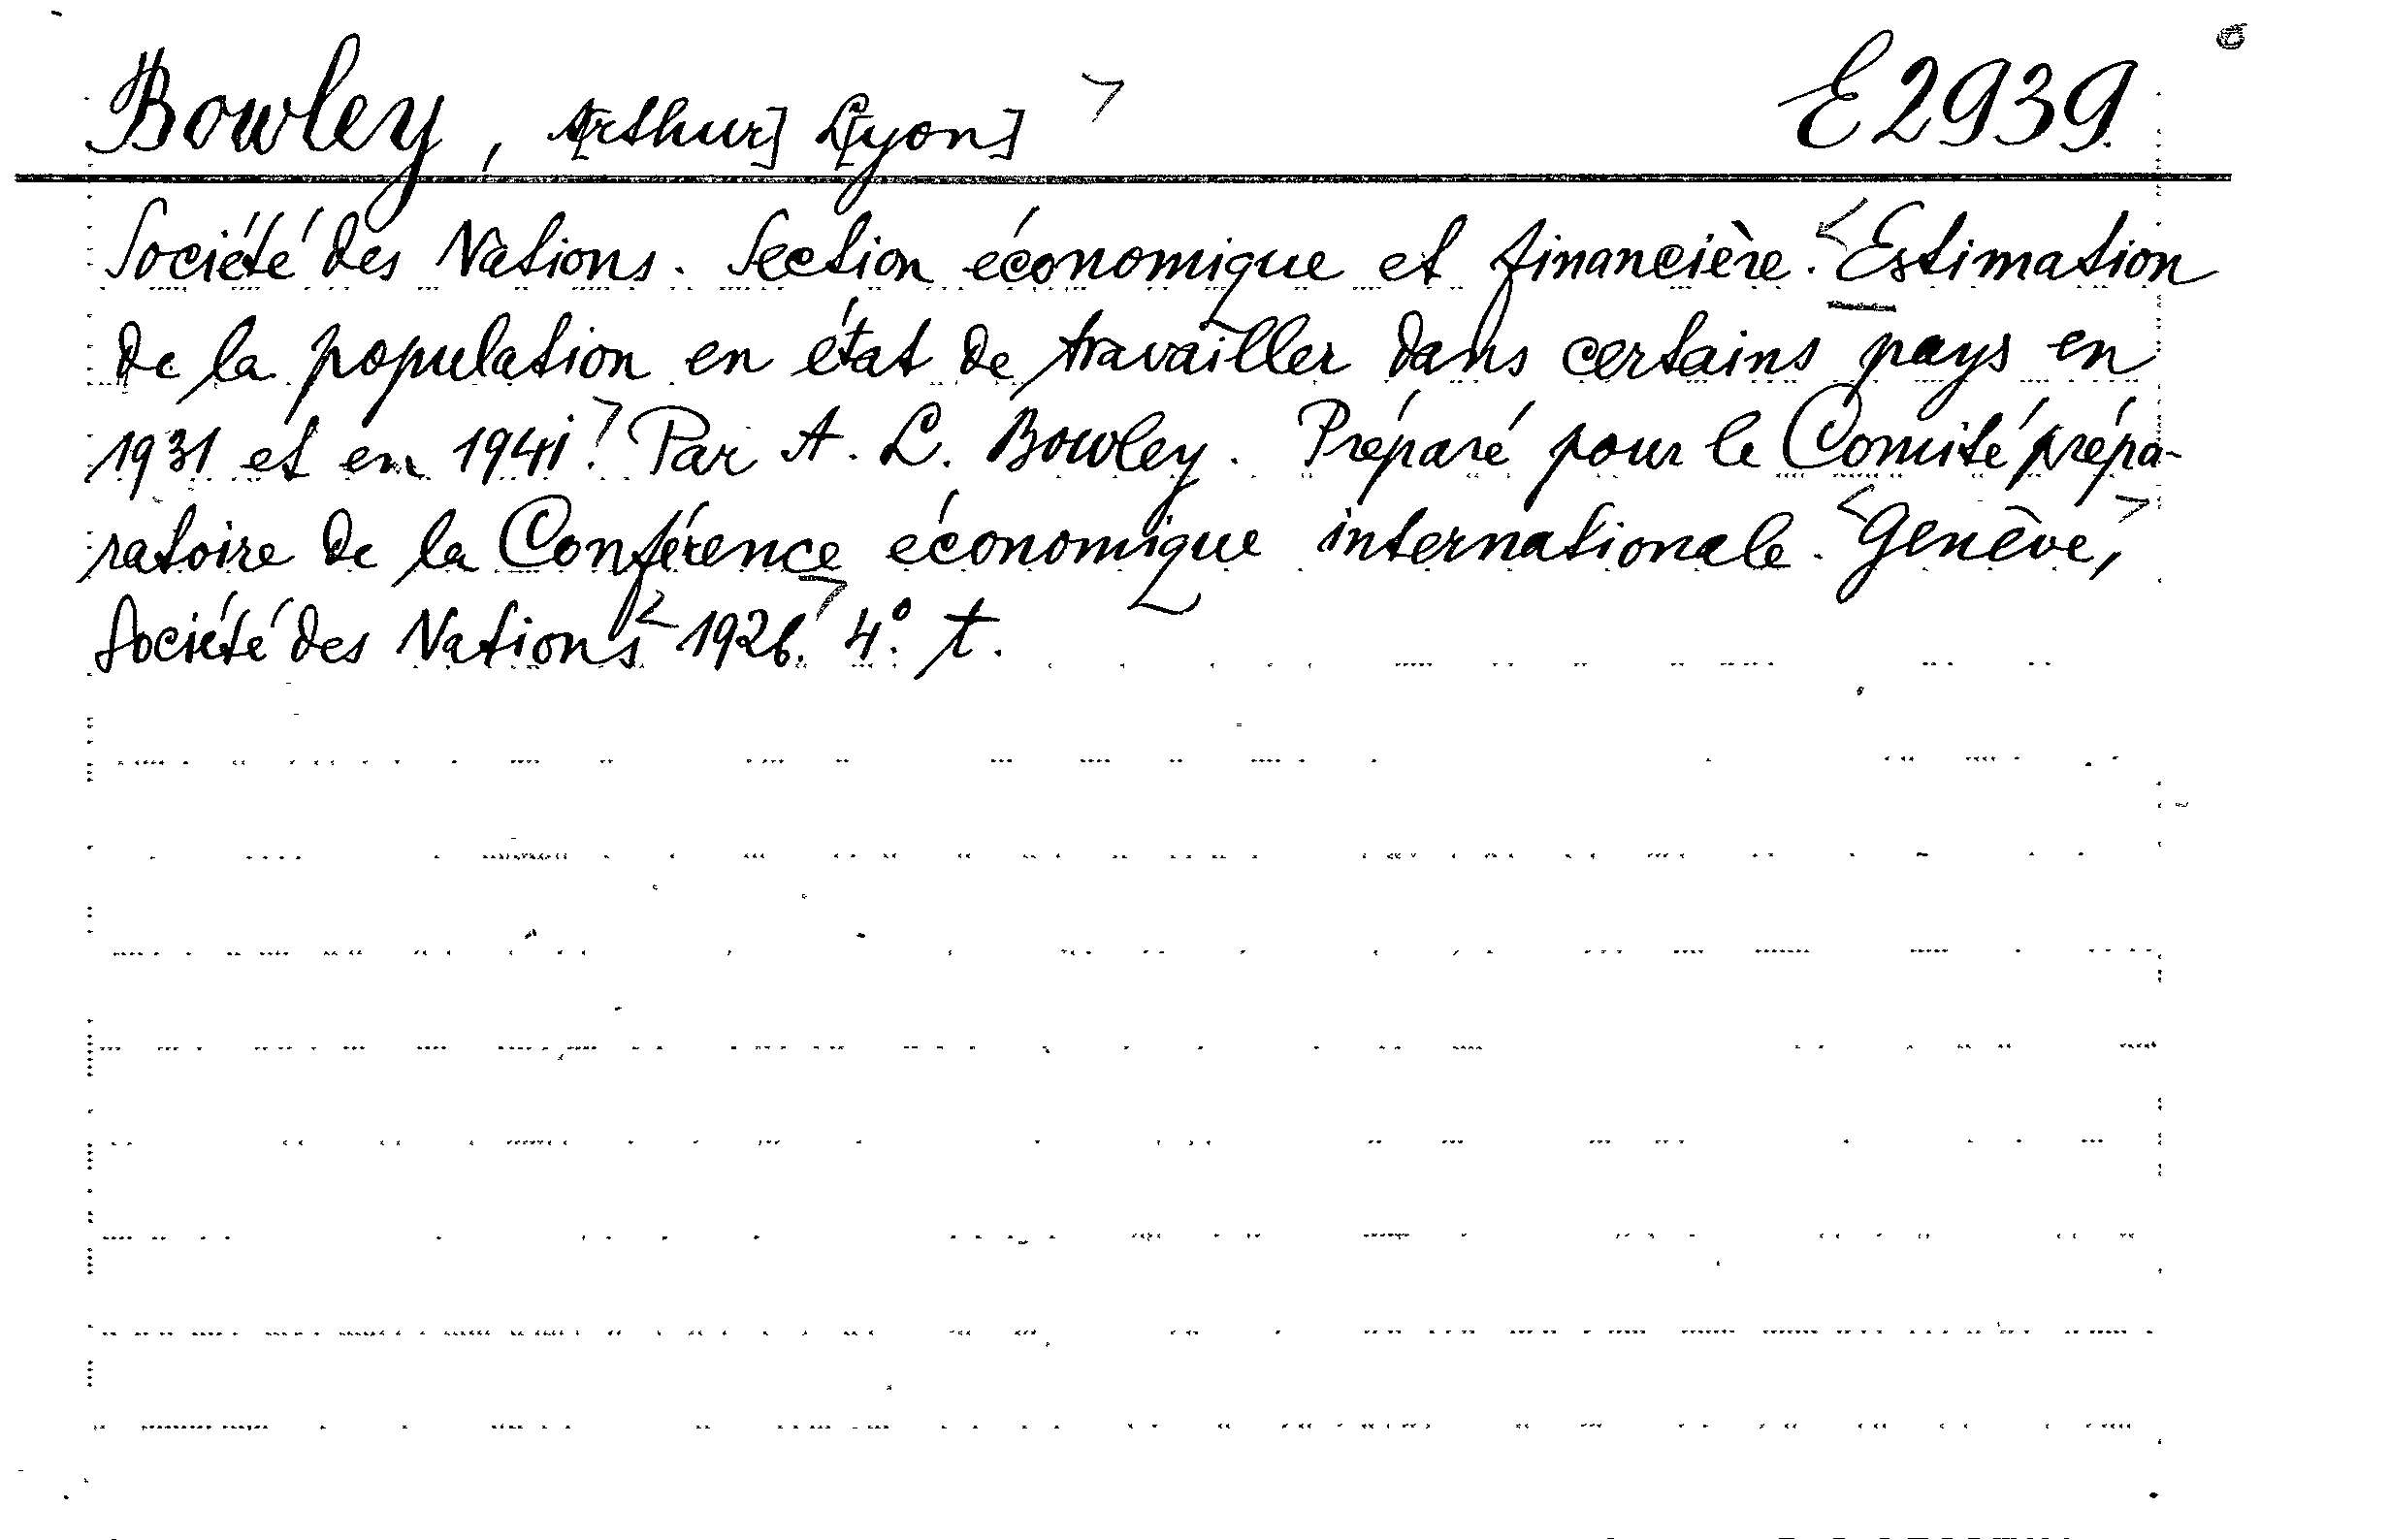 Bowley, A[rthur] L[yon] E2939.
Société des Nations. Section économique et financière. Estimation
de la population en état de travailler dans certains pays en
1931 et en 1941. Par A. L. Bowley. Préparé pour le Comité prépa-
ratoire de la Conférence économique internationale. Genève,
Société des Nations 1926. 4°. t.